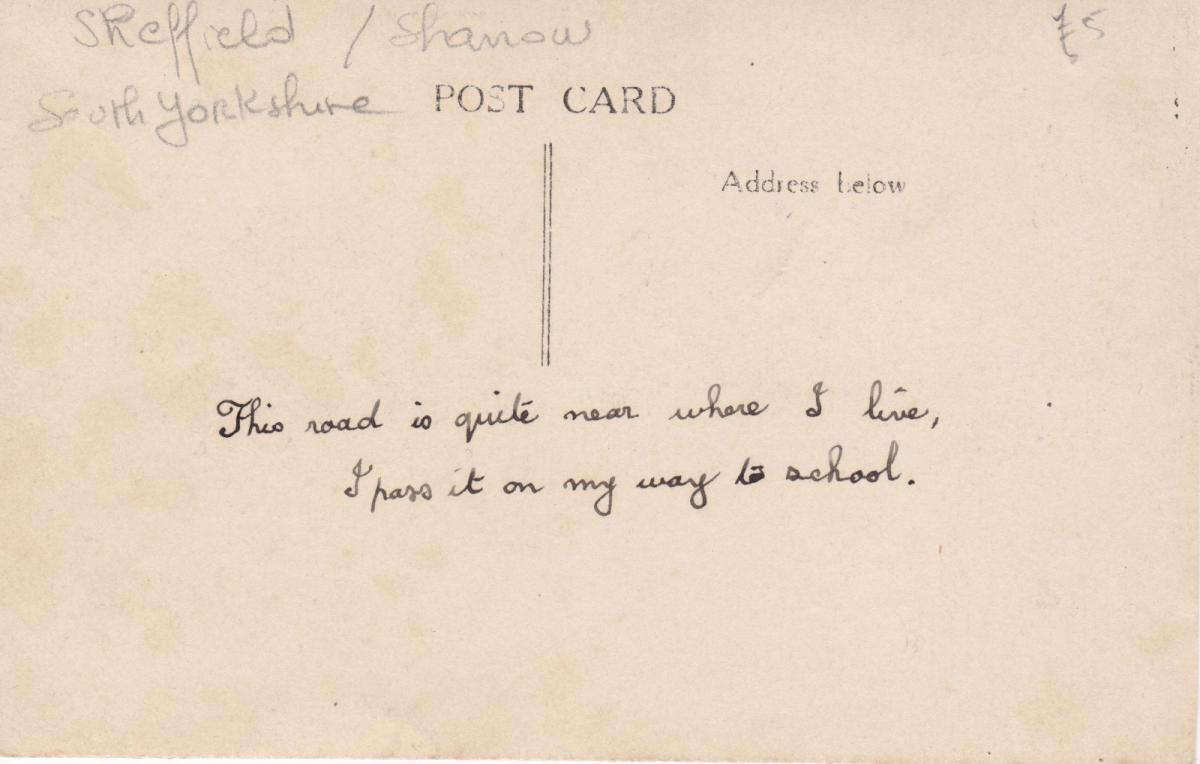 Sheffield / Sharrow
£5
South Yorkshire
POST CARD
Address below
This road is quite near where I live,
I pass it on my way to school.